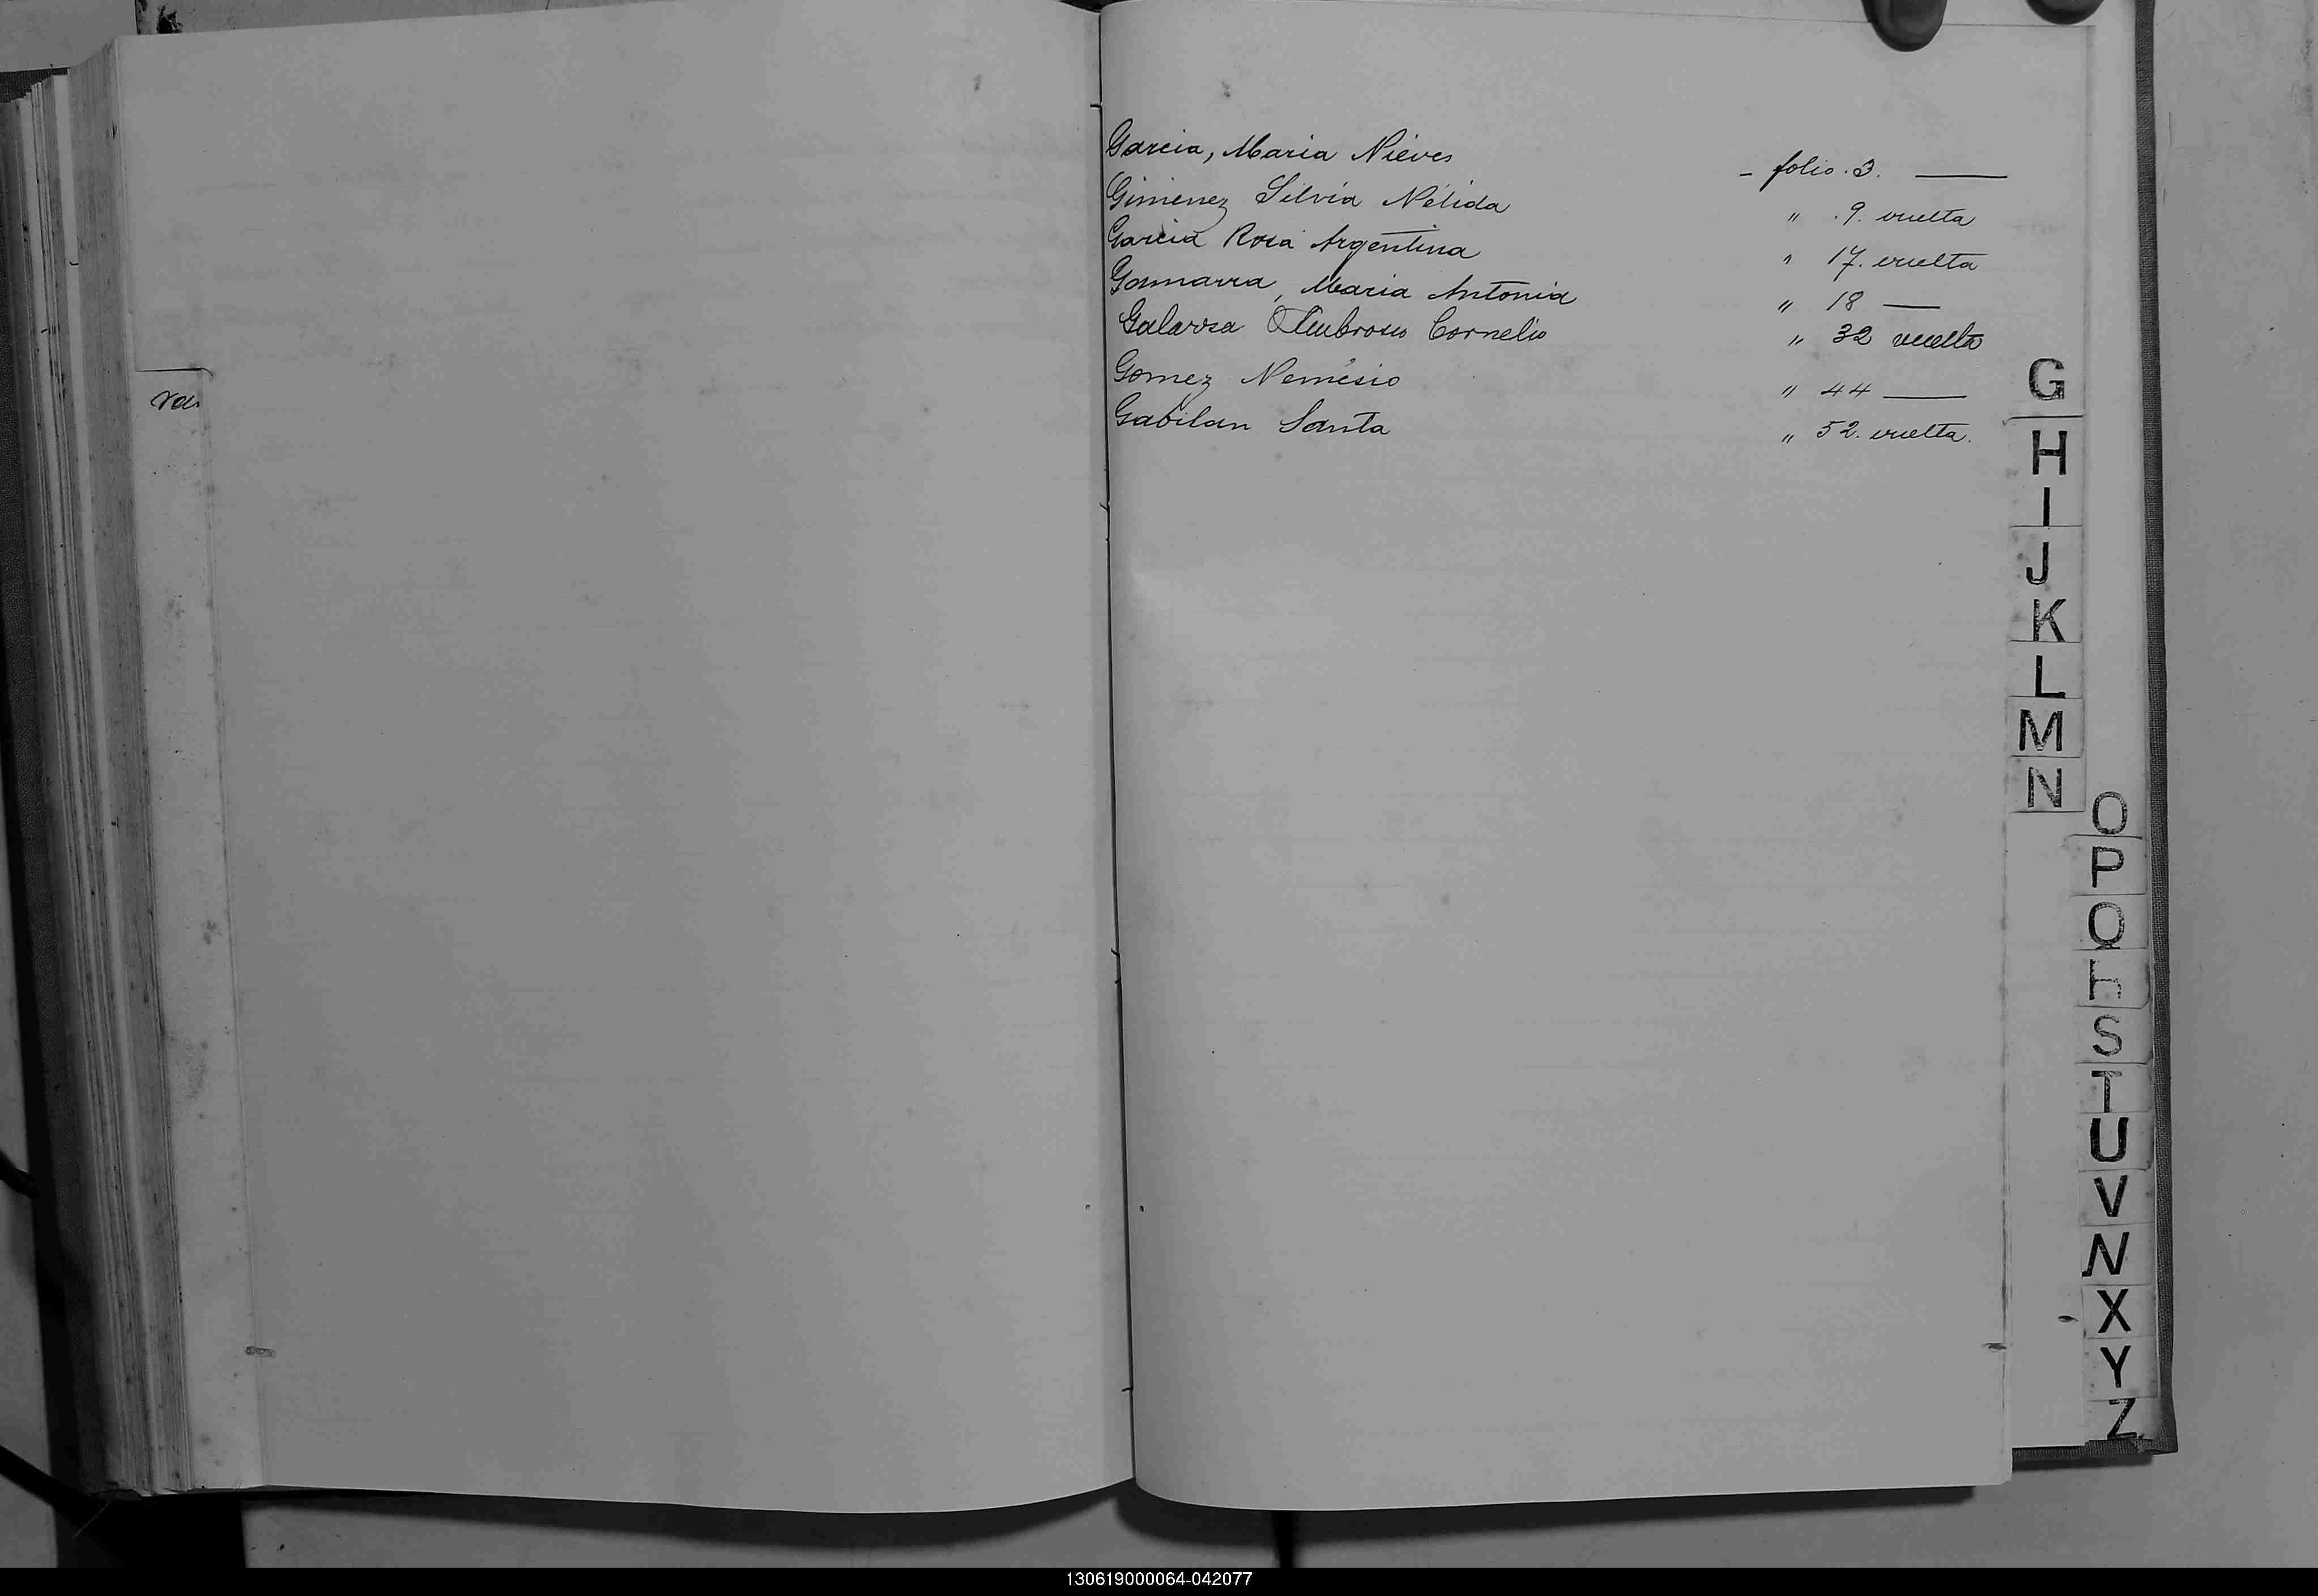 Garcia, Maria Nieves - folio. 3. ——
Gimenez Silvia Nélida " . 9. vuelta
Garcia Rosa Argentina " 17. vuelta
Gamarra, Maria Antonia " 18 —
Galarza Ambrosio Cornelio " 32 vuelta
Gomez Nemésio " 44 ——
Gabilan Santa " 52. vuelta.
G
H
I
J
K
L
M
N
O
P
Q
S
T
U
V
X
Y
Z
130619000064-042077